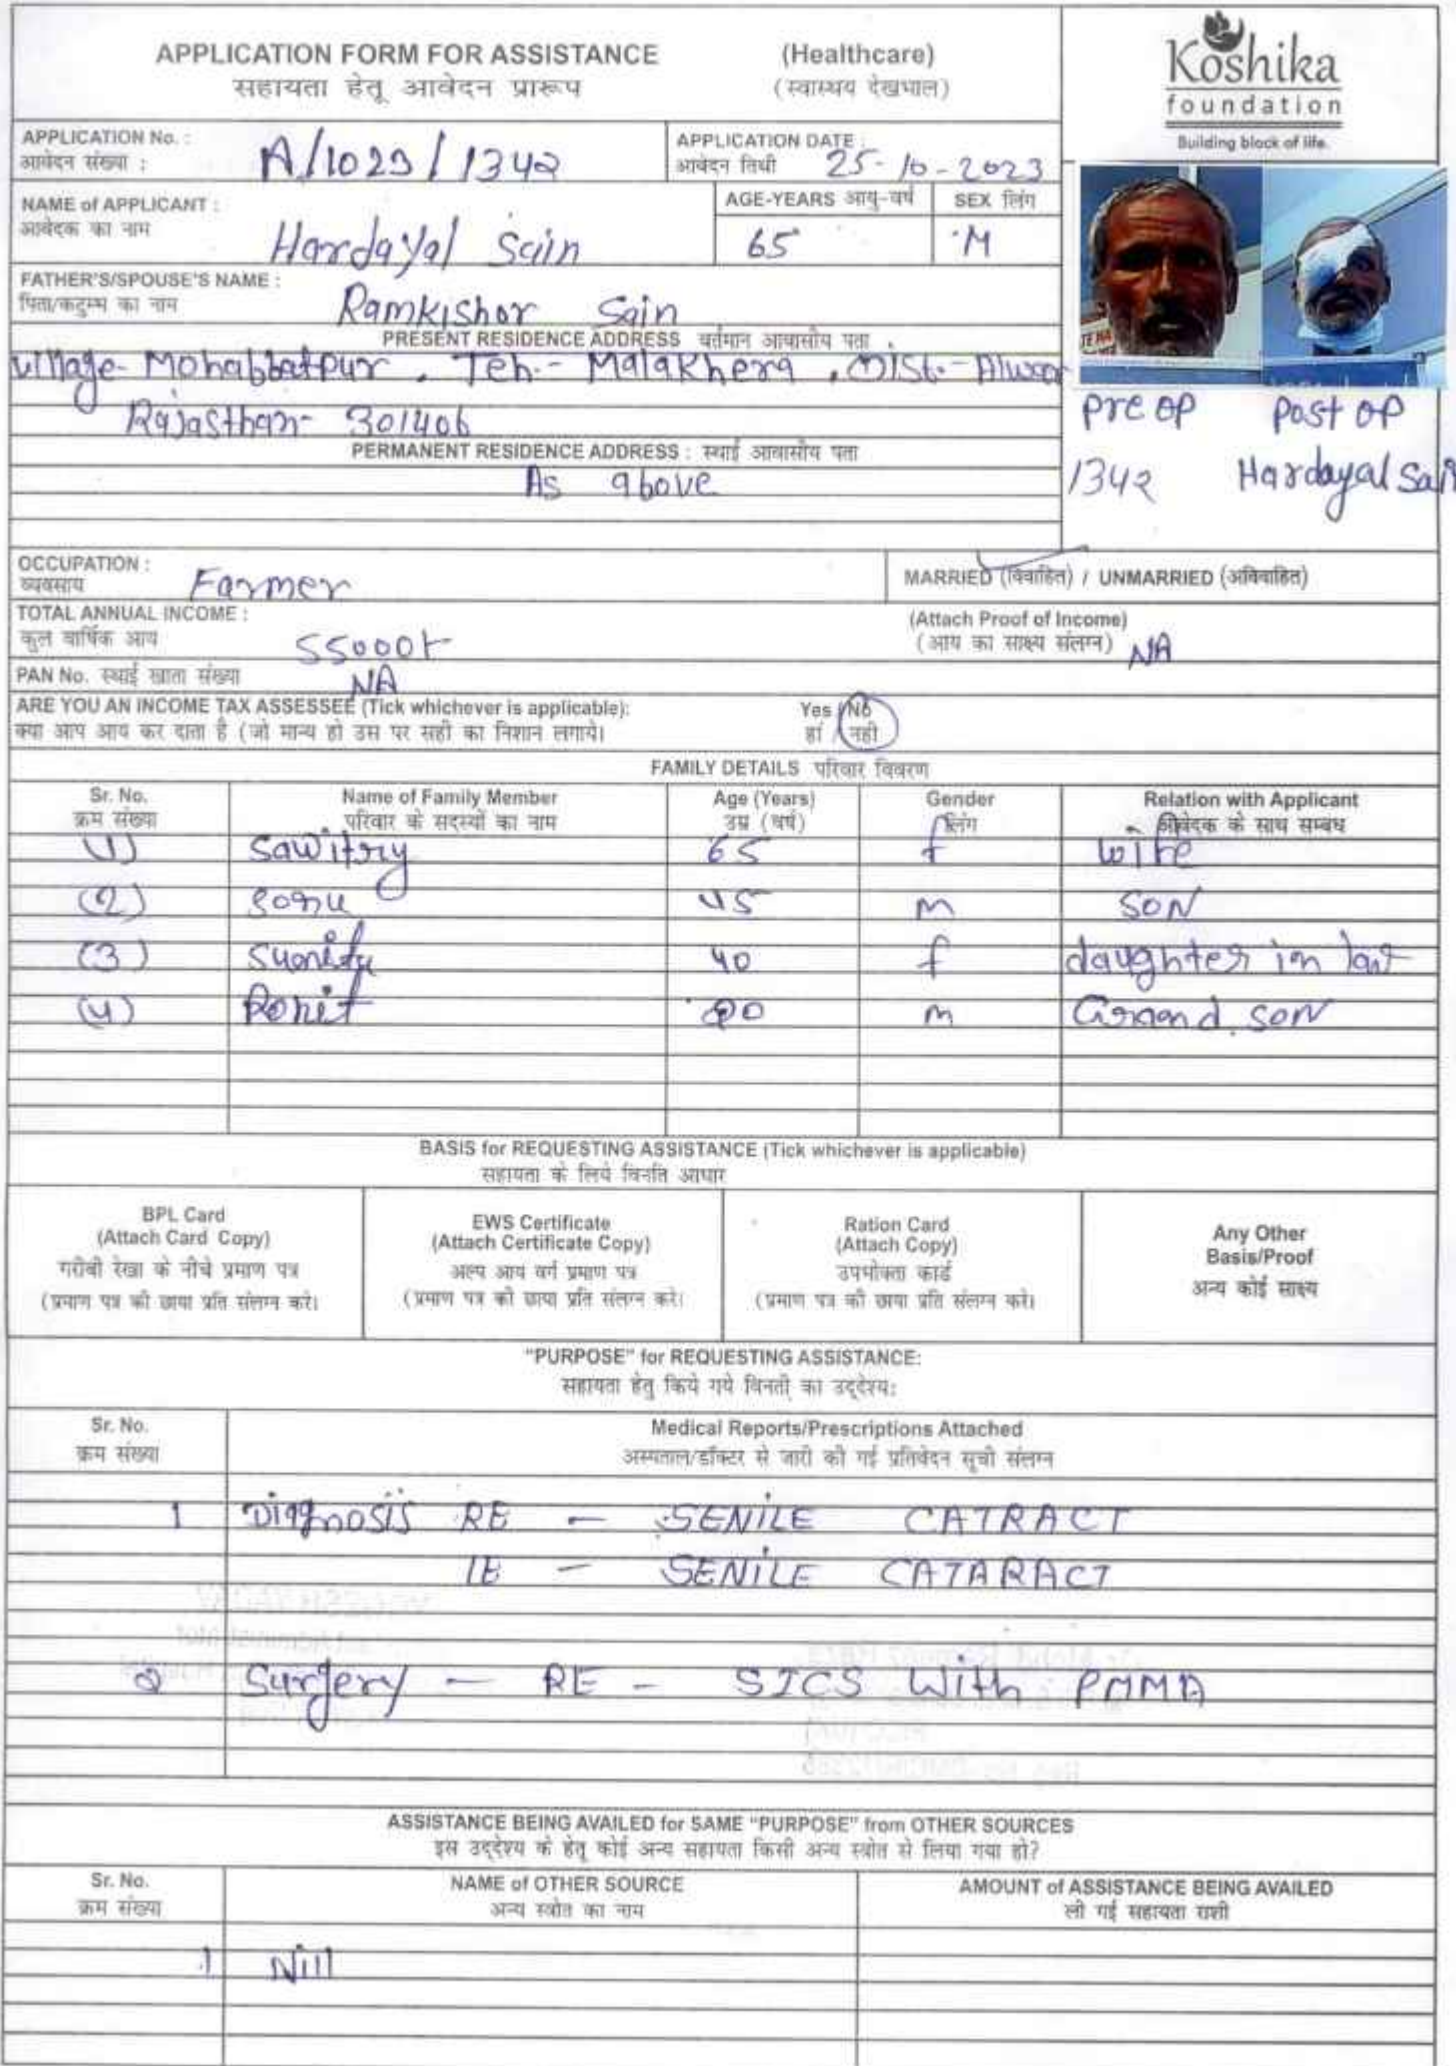 APPLICATION FORM FOR ASSISTANCE (Healthcare)
सहायता हेतू आवेदन प्रारूप (स्वास्थय देखभाल)
Koshika
foundation
Building block of life.
APPLICATION No. : A/1023/1342
आवेदन संख्या :
APPLICATION DATE : 25-10-2023
आवेदन तिथी
NAME of APPLICANT : Hardayal Sain
आवेदक का नाम
AGE-YEARS आयु-वर्ष 65
SEX लिंग M
FATHER'S/SPOUSE'S NAME : Ramkishor Sain
पिता/कटुम्ब का नाम
PRESENT RESIDENCE ADDRESS वर्तमान आवासीय पता
Village- Mohabbatpur, Teh.- Malakhera, Dist.- Alwar
Rajasthan- 301406
PERMANENT RESIDENCE ADDRESS : स्थाई आवासीय पता
As above
Pre OP Post OP
1342 Hardayal Sain
OCCUPATION : Farmer
व्यवसाय
MARRIED (विवाहित) / UNMARRIED (अविवाहित)
TOTAL ANNUAL INCOME : 55000/-
कुल वार्षिक आय
(Attach Proof of Income)
(आय का साक्ष्य संलग्न) NA
PAN No. स्थाई खाता संख्या NA
ARE YOU AN INCOME TAX ASSESSEE (Tick whichever is applicable): Yes / No
क्या आप आय कर दाता है (जो मान्य हो उस पर सही का निशान लगाये। हां / नही
FAMILY DETAILS परिवार विवरण
Sr. No. Name of Family Member Age (Years) Gender Relation with Applicant
क्रम संख्या परिवार के सदस्यों का नाम उम्र (वर्ष) लिंग आवेदक के साथ सम्बध
(1) Sawitry 65 f wife
(2) Sonu 45 m SON
(3) Sunita 40 f daughter in law
(4) Rohit 20 m Grand son
BASIS for REQUESTING ASSISTANCE (Tick whichever is applicable)
सहायता के लिये विनति आधार
BPL Card
(Attach Card Copy)
गरीबी रेखा के नीचे प्रमाण पत्र
(प्रमाण पत्र की छाया प्रति संलग्न करे।
EWS Certificate
(Attach Certificate Copy)
अल्प आय वर्ग प्रमाण पत्र
(प्रमाण पत्र की छाया प्रति संलग्न करे।
Ration Card
(Attach Copy)
उपभोक्ता कार्ड
(प्रमाण पत्र की छाया प्रति संलग्न करे।
Any Other
Basis/Proof
अन्य कोई साक्ष्य
"PURPOSE" for REQUESTING ASSISTANCE:
सहायता हेतु किये गये विनती का उद्देश्य:
Sr. No. Medical Reports/Prescriptions Attached
क्रम संख्या अस्पताल/डॉक्टर से जारी की गई प्रतिवेदन सूची संलग्न
1 Diagnosis RE - SENILE CATRACT
LE - SENILE CATARACT
2 Surgery - RE - SICS With PMMA
ASSISTANCE BEING AVAILED for SAME "PURPOSE" from OTHER SOURCES
इस उद्देश्य के हेतू कोई अन्य सहायता किसी अन्य स्त्रोत से लिया गया हो?
Sr. No. NAME of OTHER SOURCE AMOUNT of ASSISTANCE BEING AVAILED
क्रम संख्या अन्य स्त्रोत का नाम ली गई सहायता राशी
1 Nill